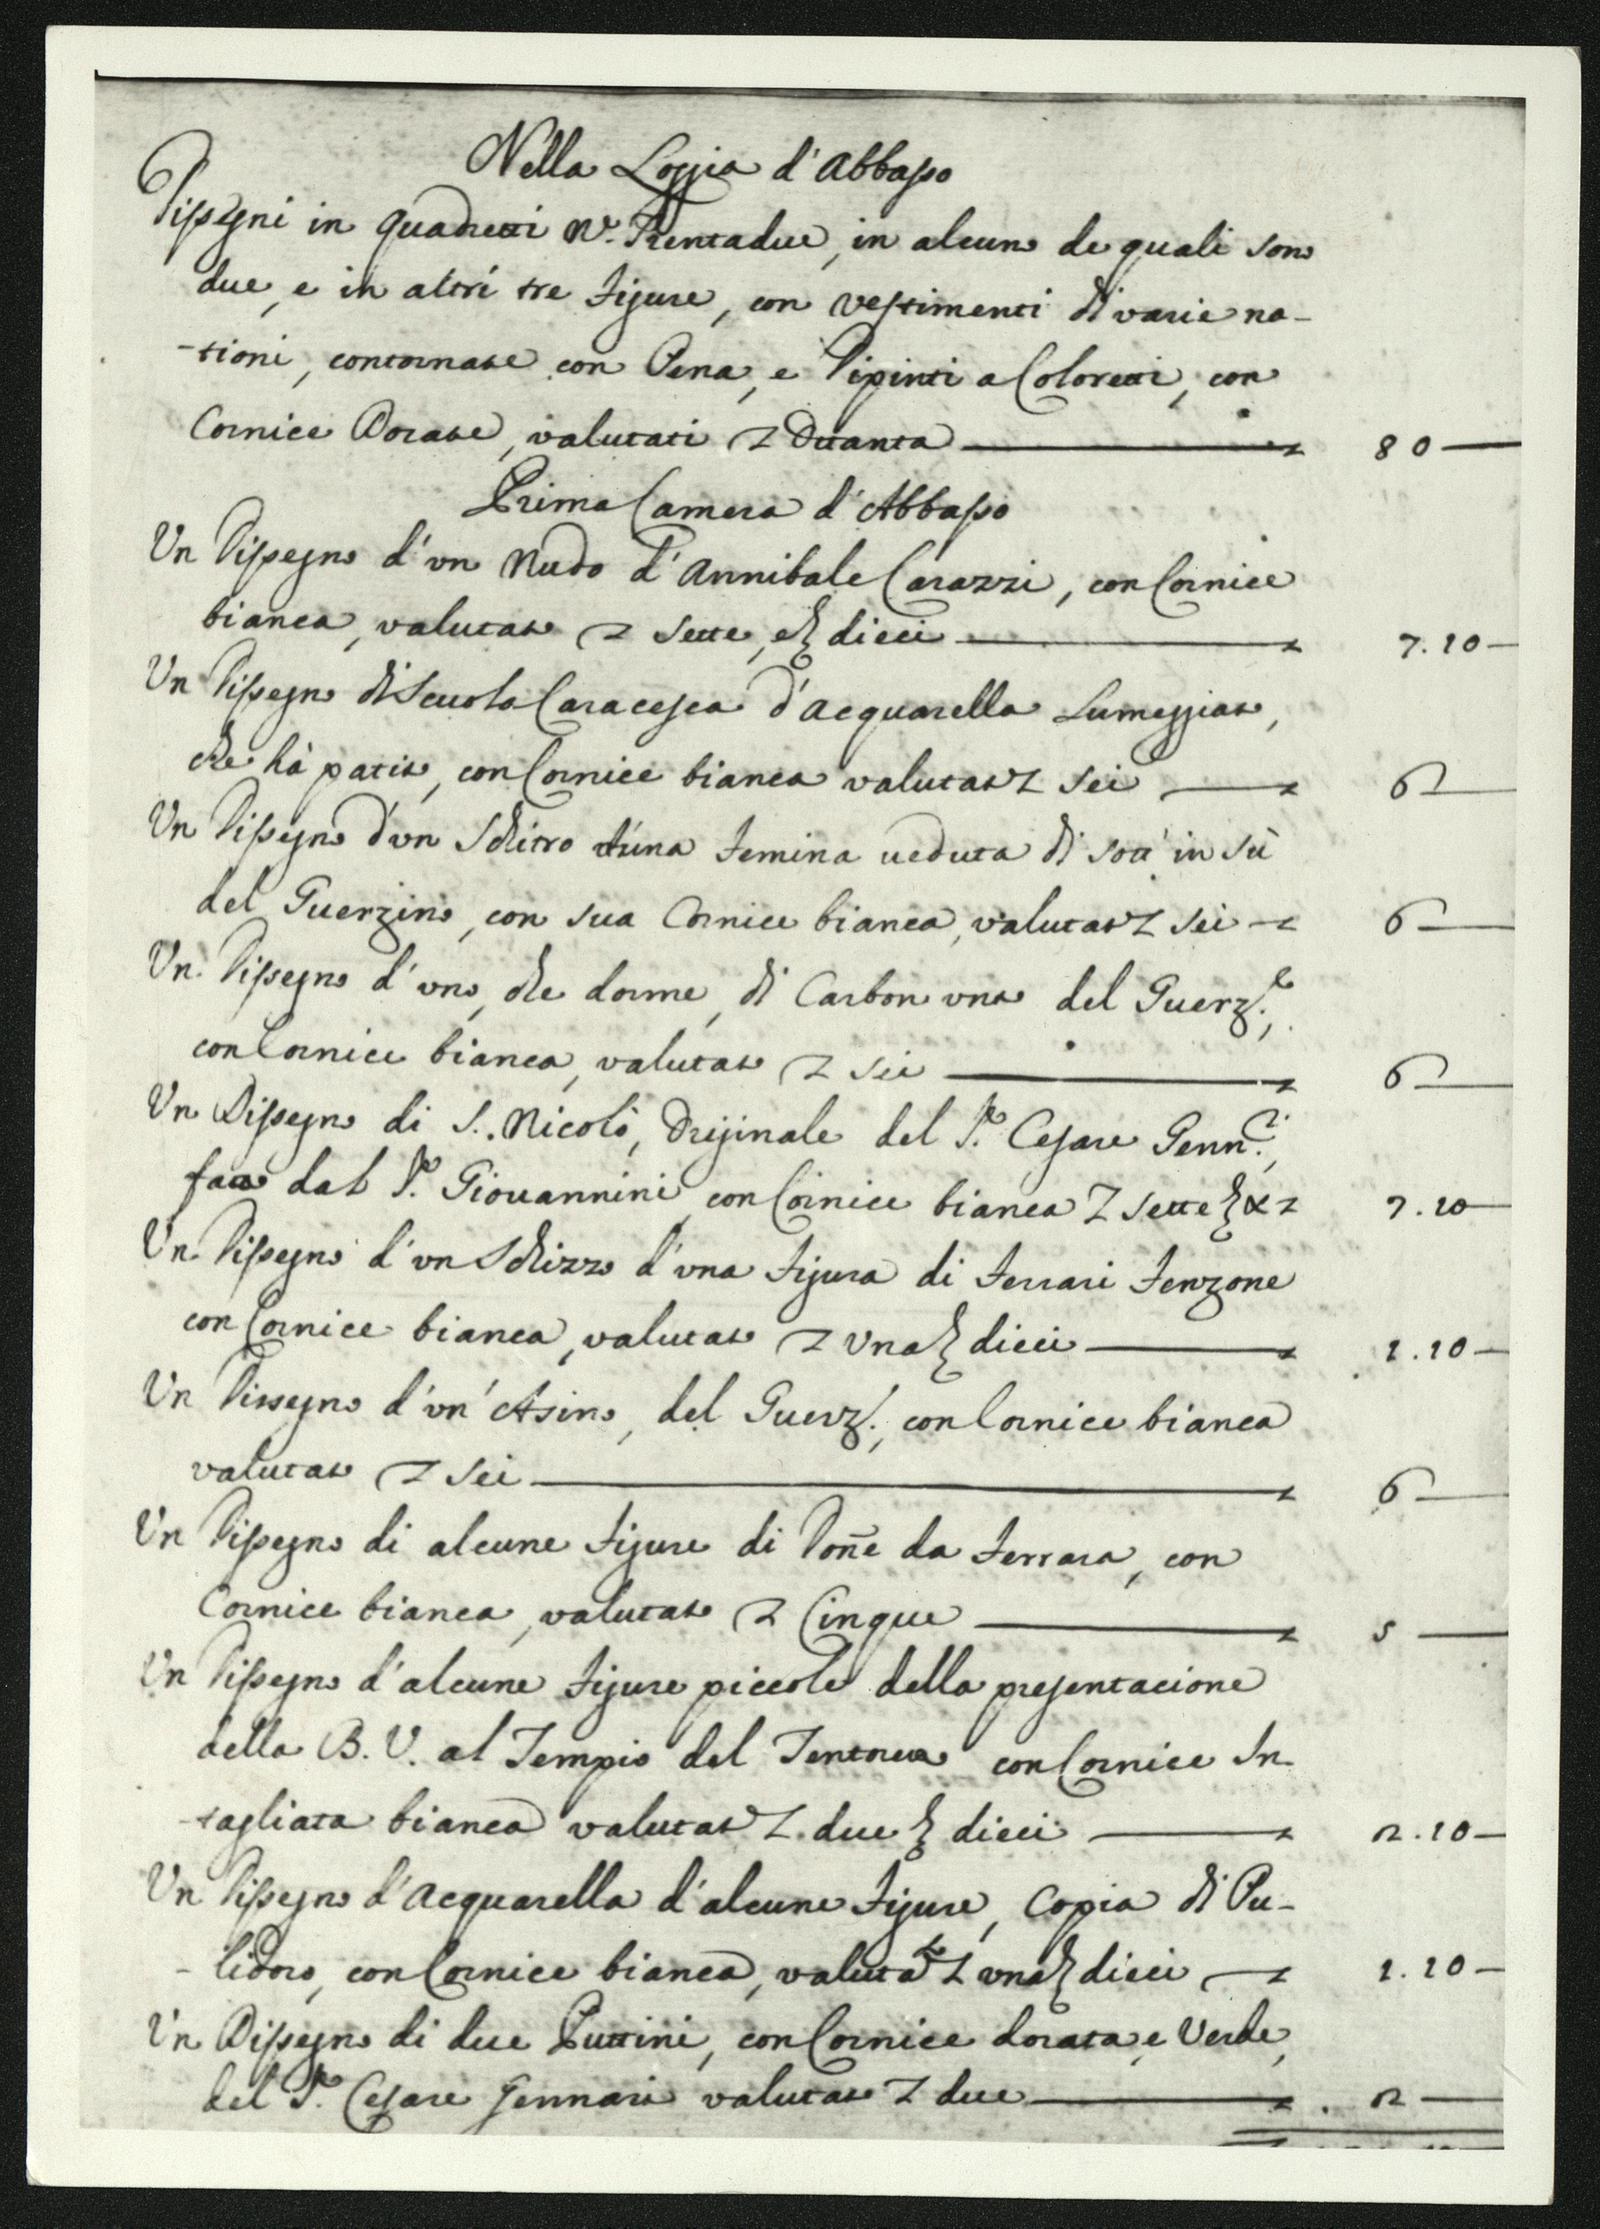 Nella Loggia d'Abbasso
Dissegni in Quadretti N.º Trentadue, in alcuno de quali sono
due, e in altri tre figure, con vestimenti di varie na-
-tioni, contornate con Pena, e Dipinti a Coloretti, con
Cornice Dorate, valutati L Ottanta — L 80 —
Prima Camera d'Abbasso
Un Dissegno d'un Nudo d'Annibale Carazzi, con Cornice
bianca, valutato L sette, e ß dieci — L 7.10 —
Un Dissegno di Scuola Caracesca d'Acquarella Lumeggiato,
che hà patito, con Cornice bianca valutato L sei — L 6 —
Un Dissegno d'un Schitro d'una femina veduta di sott' in sù
del Guerzino, con sua Cornice bianca, valutato L sei — L 6 —
Un Dissegno d'uno, che dorme, di Carbon unto del Guerz.º,
con Cornice bianca, valutato L sei — L 6 —
Un Dissegno di S. Nicolò, Originale del S.r Cesare Genn.ri,
fatto dal S.r Giovannini con Cornice bianca L sette ß X L 7.10 —
Un Dissegno d'un Schizzo d'una figura di Ferrari Fenzone
con Cornice bianca, valutato L una ß dieci — L 1.10 —
Un Dissegno d'un' Asino, del Guerz., con Cornice bianca
valutato L sei — L 6 —
Un Dissegno di alcune figure di Doñe da Ferrara, con
Cornice bianca, valutato L Cinque — L 5 —
Un Dissegno d'alcune figure piccole della presentacione
della B. V. al Tempio del Tentoretto con Cornice In-
-tagliata bianca valutato L due ß dieci — L 2.10 —
Un Dissegno d'Acquarella d'alcune figure, Copia di Pu-
-lidoro, con Cornice bianca, valutato L una ß dieci — L 1.10 —
Un Dissegno di due Puttini, con Cornice dorata, e Verde,
del S.r Cesare Gennari valutato L due — L 2 —